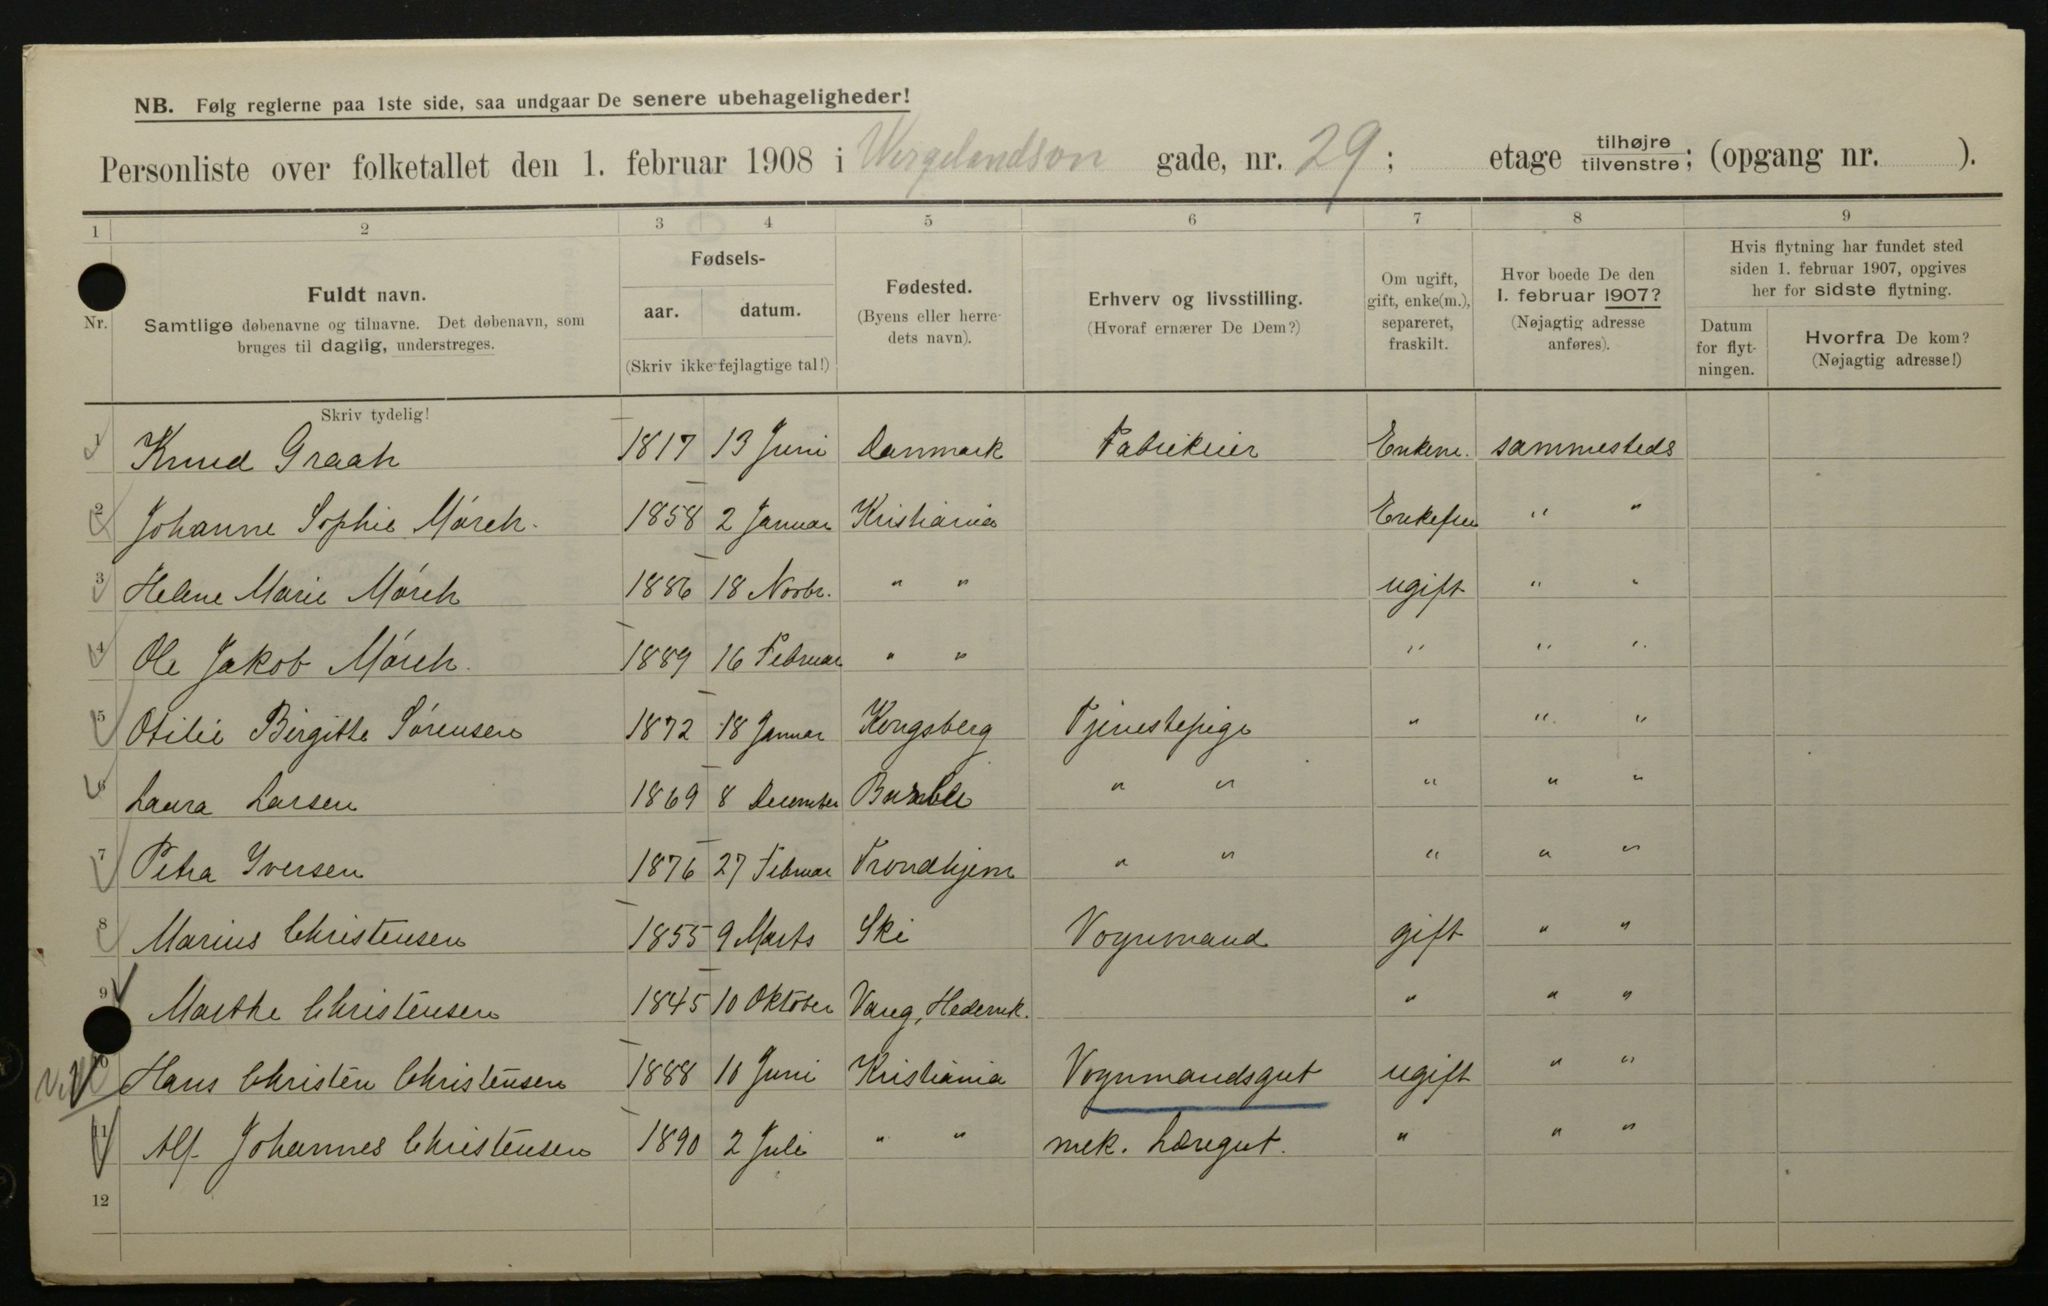 NB. Følg reglerne paa 1ste side, saa undgaar De senere ubehageligheder!
Personliste over folketallet den 1. februar 1908 i Wergelandsvn gade, nr. 29; etage tilhøjre tilvenstre; (opgang nr. ).
1 2 3 4 5 6 7 8 9
Nr. Fuldt navn. Samtlige døbenavne og tilnavne. Det døbenavn, som bruges til daglig, understreges. Skriv tydelig!
Fødsels- aar. datum. (Skriv ikke fejlagtige tal!)
Fødested. (Byens eller herredets navn).
Erhverv og livsstilling. (Hvoraf ernærer De Dem?)
Om ugift, gift, enke(m.), separeret, fraskilt.
Hvor boede De den 1. februar 1907? (Nøjagtig adresse anføres).
Hvis flytning har fundet sted siden 1. februar 1907, opgives her for sidste flytning.
Datum for flytningen. Hvorfra De kom? (Nøjagtig adresse!)
1 Knud Graah 1817 13 Juni Danmark Fabrikeier Enkem. sammesteds
2 Johanne Sophie Mórch. 1858 2 Januar Kristiania Enkefru " "
3 Helene Marie Mórch 1886 18 Novbr. " " ugift " "
4 Ole Jakob Mórch. 1889 16 Februar " " " " "
5 Otilie Birgitte Sórensen 1872 18 Januar Kongsberg Tjenestepige " " "
6 Laura Larsen 1869 8 December Bamble " " " " "
7 Petra Iversen 1876 27 Februar Trondhjem " " " " "
8 Marius Christensen 1855 9 Marts Ski Vognmand gift " "
9 Marthe Christensen 1845 10 Oktober Vang, Hedemk. " " "
10 Hans Christen Christensen 1888 10 Juni Kristiania Vognmandsgut ugift " "
11 Alf Johannes Christensen 1890 2 Juli " " mek. Læregut. " " "
12